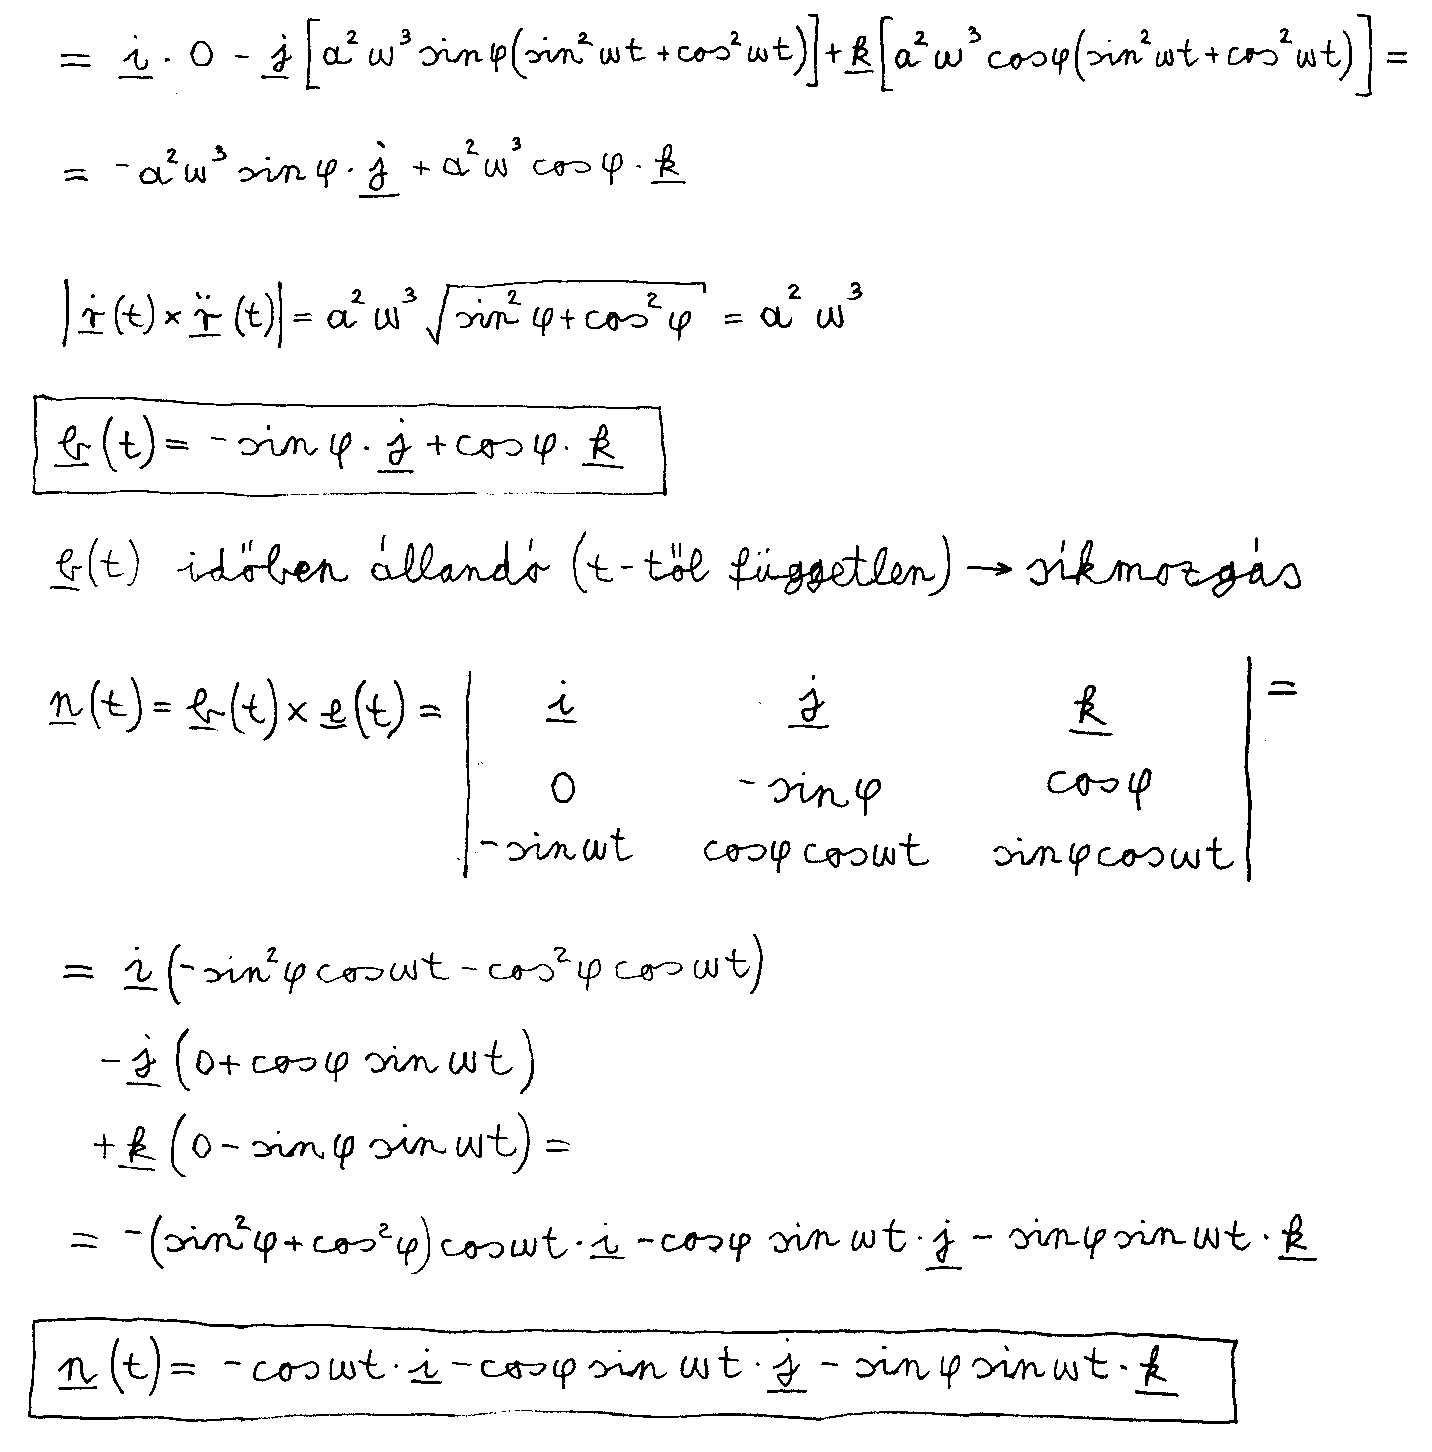 = i · 0 - j [a²ω³ sinφ(sin²ωt + cos²ωt)] + k [a²ω³ cosφ(sin²ωt + cos²ωt)] =
= -a²ω³ sinφ · j + a²ω³ cosφ · k
|ṙ(t) × r̈(t)| = a²ω³ √(sin²φ + cos²φ) = a²ω³
b(t) = -sinφ · j + cosφ · k
b(t) időben állandó (t-től független) → síkmozgás
n(t) = b(t) × e(t) = | i j k | =
0 -sinφ cosφ
-sinωt cosφcosωt sinφcosωt
= i (-sin²φ cosωt - cos²φ cosωt)
- j (0 + cosφ sinωt)
+ k (0 - sinφ sinωt) =
= -(sin²φ + cos²φ) cosωt · i - cosφ sinωt · j - sinφ sinωt · k
n(t) = -cosωt · i - cosφ sinωt · j - sinφ sinωt · k